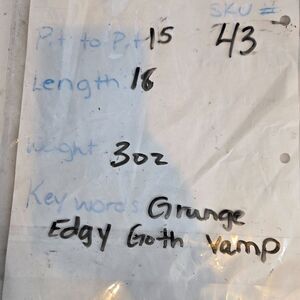 SKU #
P.t. to P.t 15 43
Length 16
weight 3oz
Key words Grunge
Edgy Goth Vamp